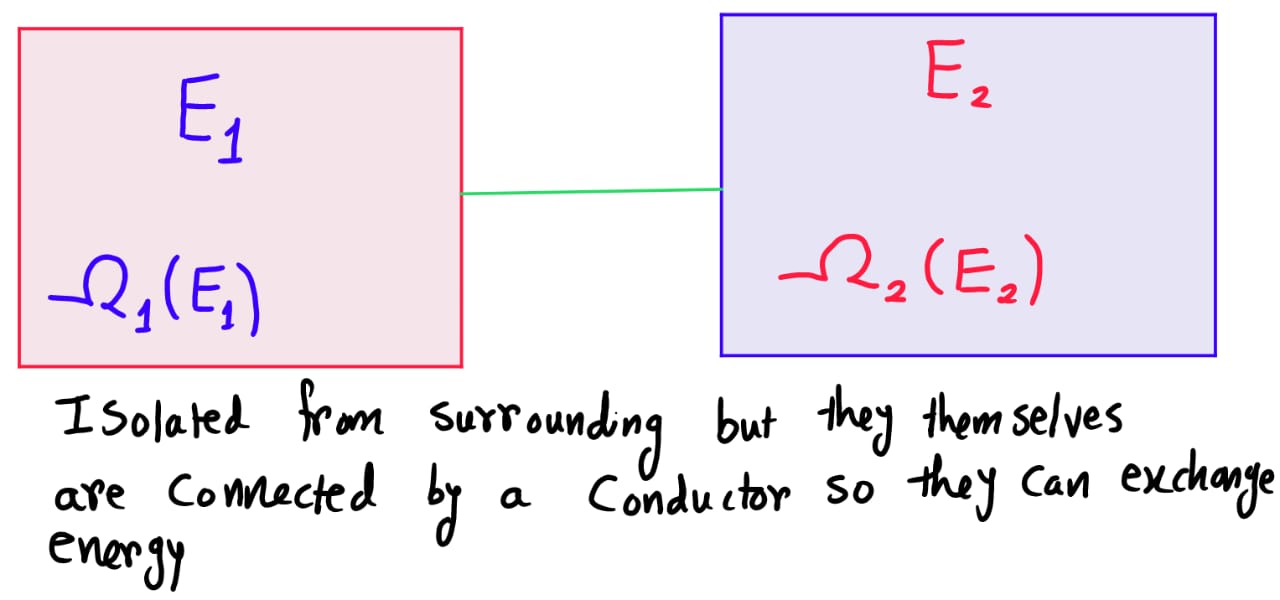 E₁
E₂
Ω₁(E₁)
Ω₂(E₂)
Isolated from surrounding but they themselves
are connected by a Conductor so they can exchange
energy